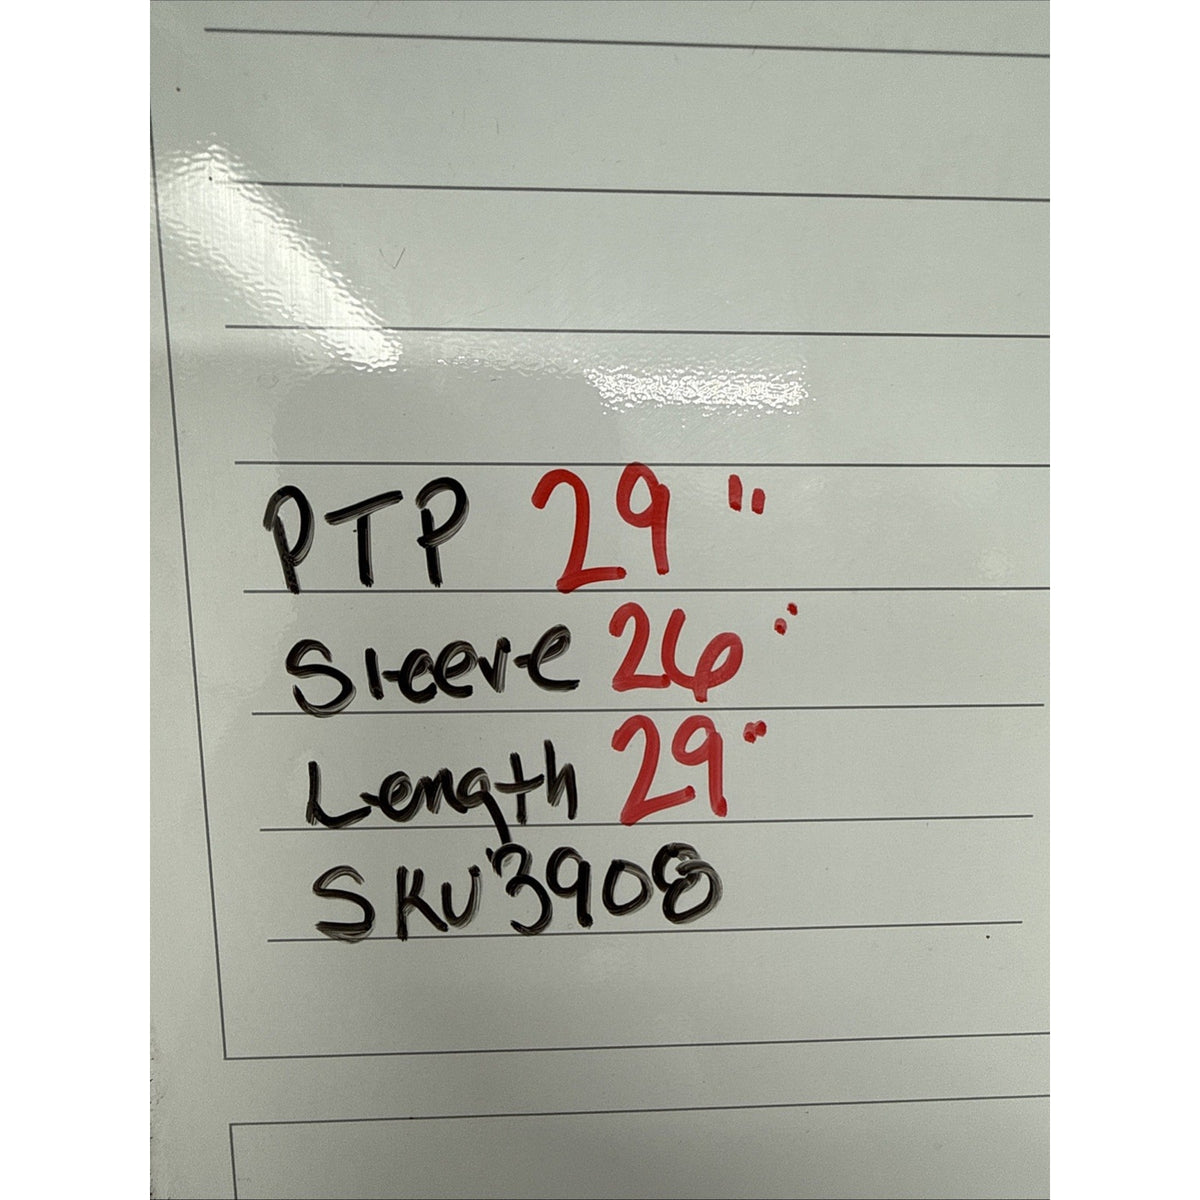 PTP 29"
Sleeve 26"
Length 29"
SKU 3908